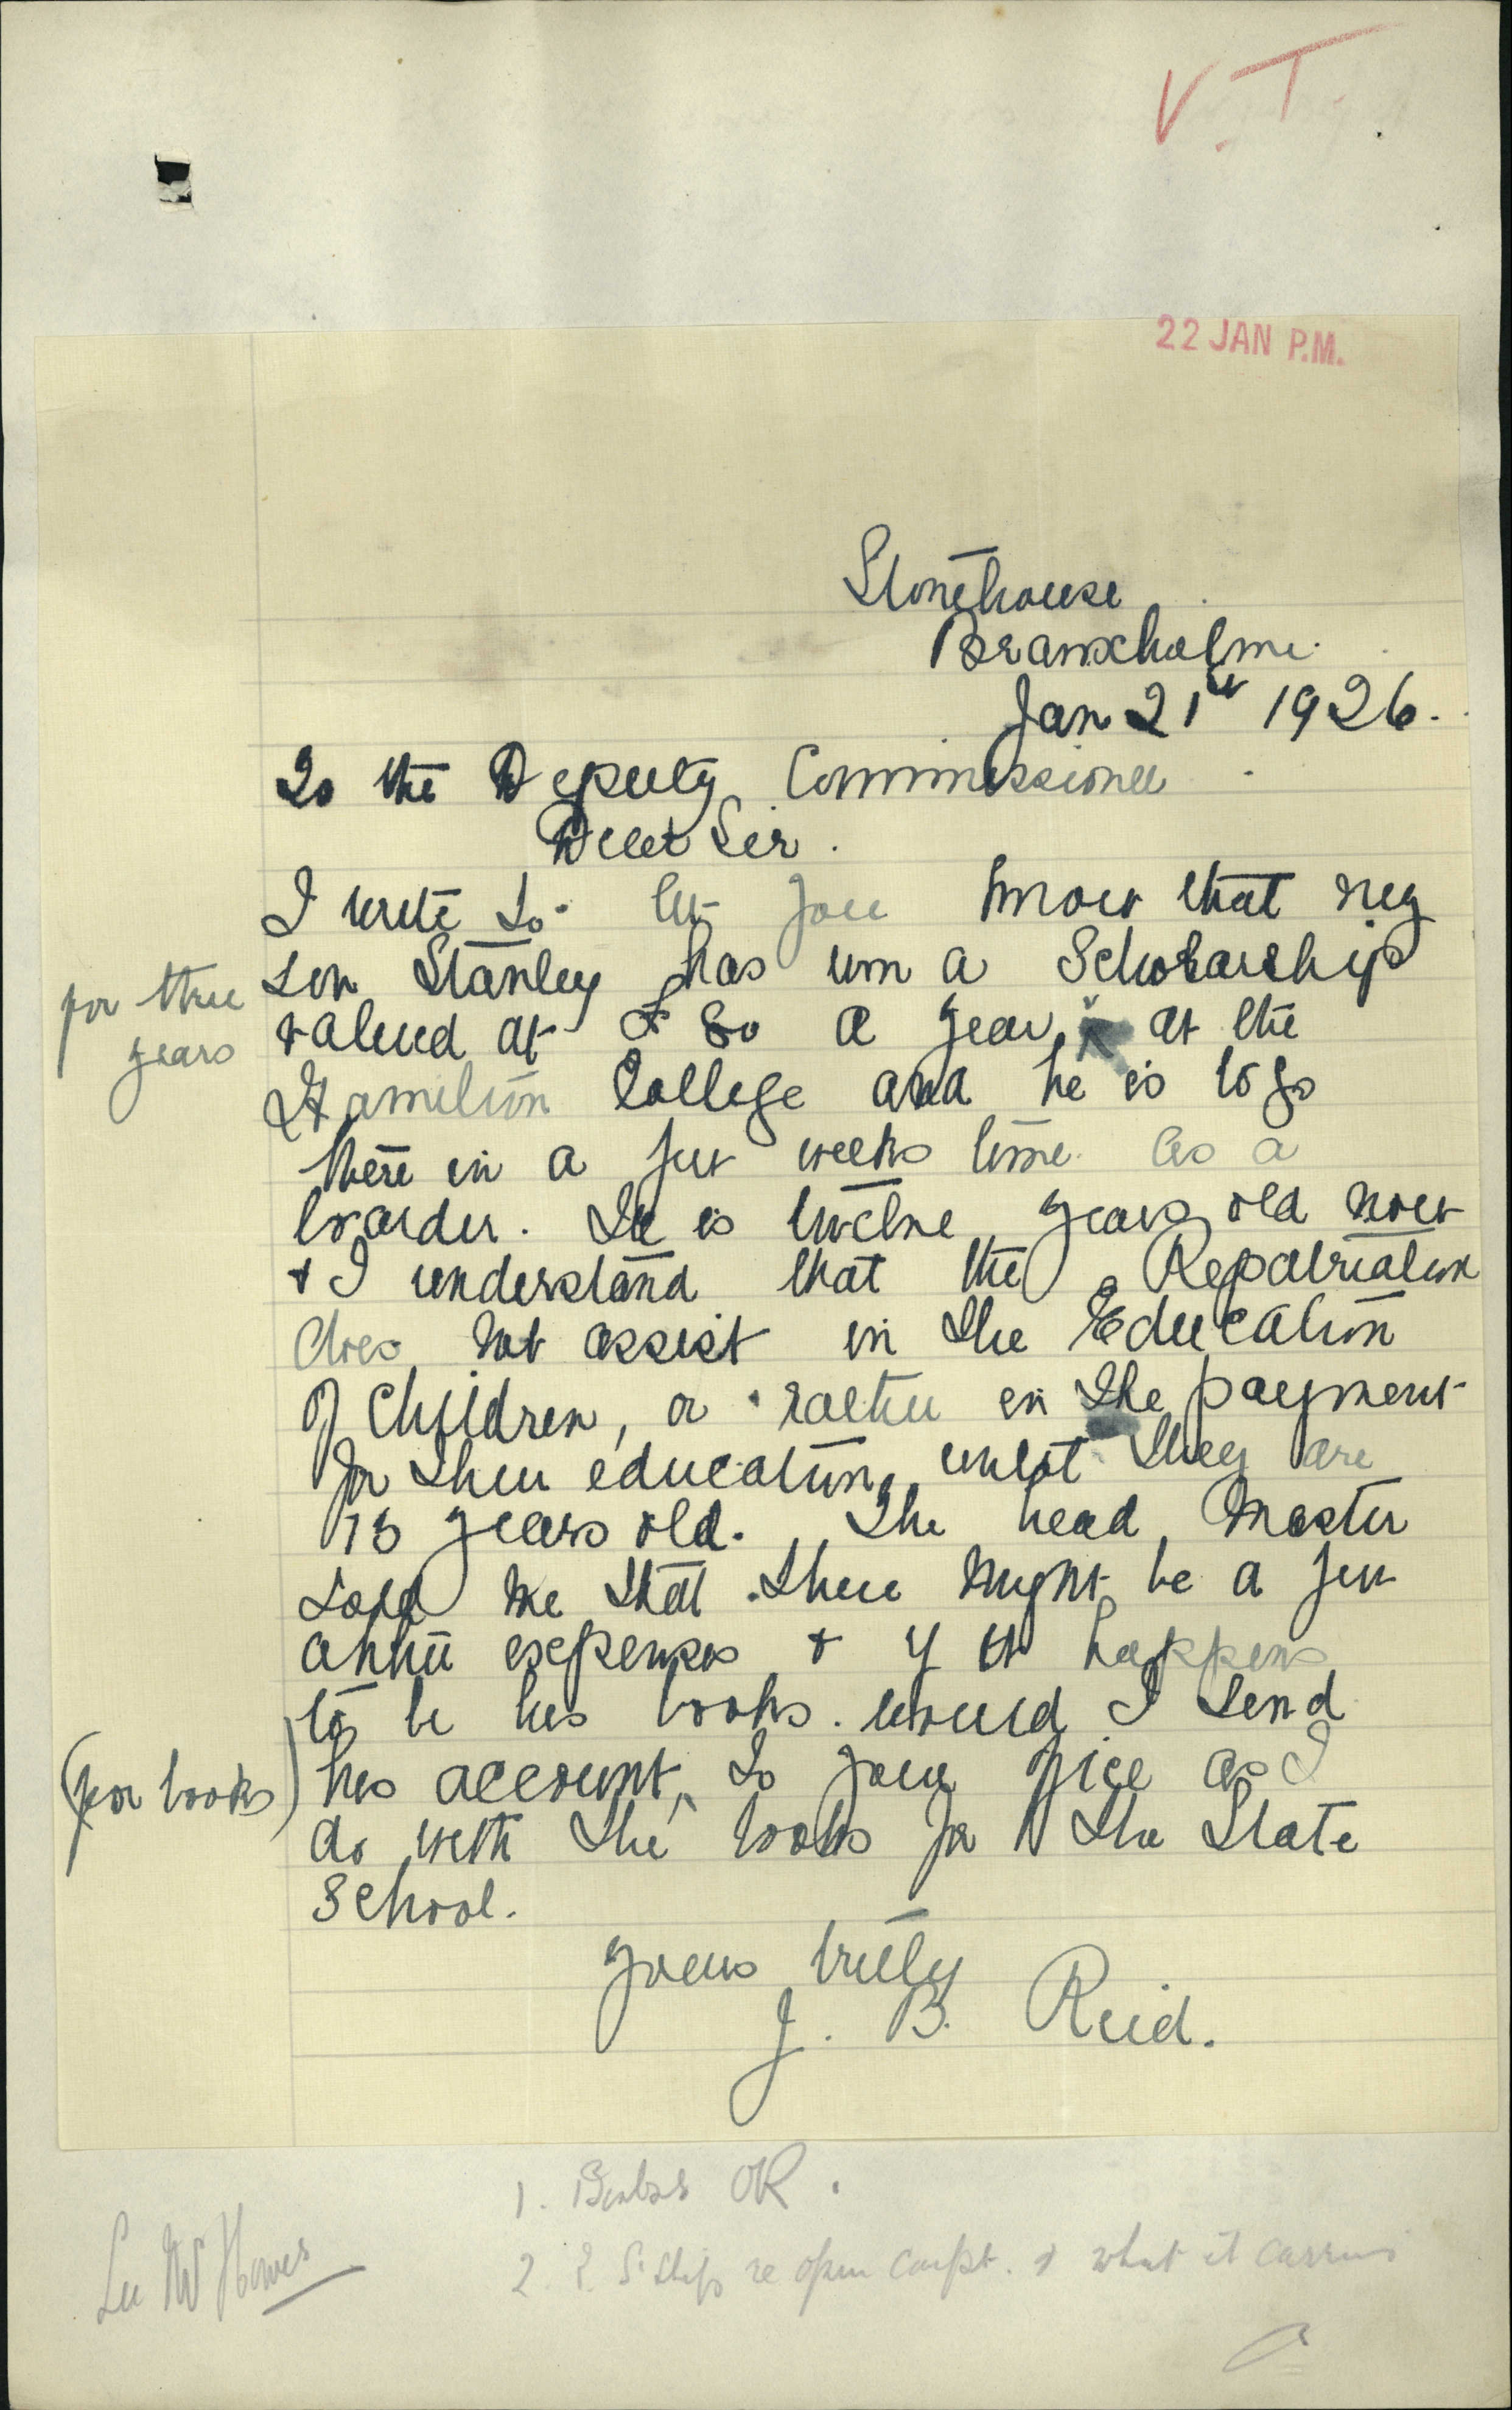 V.T
22 JAN P.M.
Stonehouse
Branxholme.
Jan 21st 1926.
To the Deputy Commissioner
Dear Sir.
I write to let you know that my
son Stanley has won a Scholarship
for three years
valued at £ 80 a year, at the
Hamilton College and he is to go
there in a few weeks time as a
boarder. He is twelve years old now
& I understand that the Repatriation
does not assist in the Education
of Children, or rather in the payment
for their education, until they are
13 years old. The head Master
told me that there might be a few
other expenses & if it happens
to be his books. would I send
(for books)
his account, to your office as I
do with the books for the State
School.
Yours truly
J. B. Reid.
1. Books OK.
2. S'ship re open compt. & what it carries